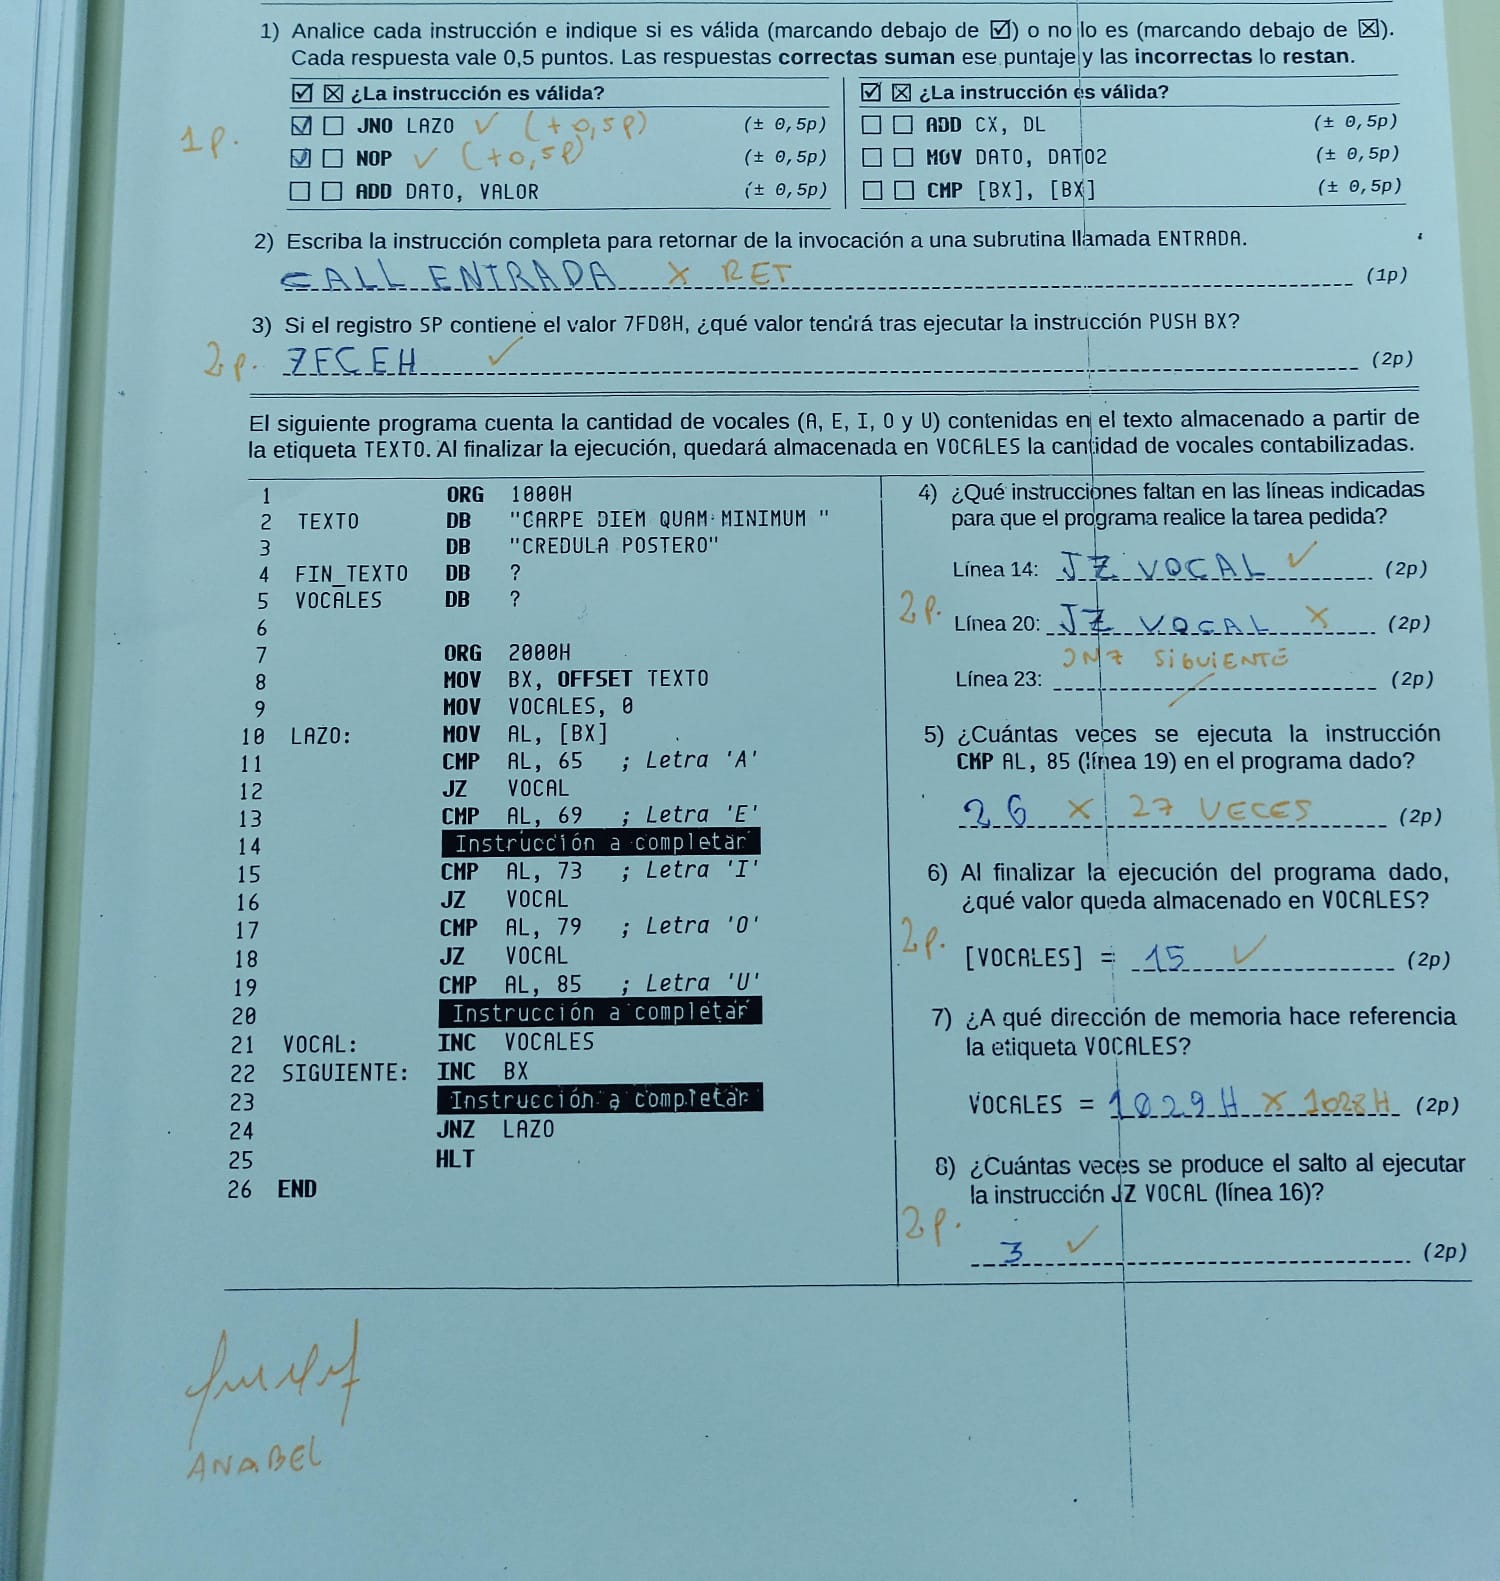 1) Analice cada instrucción e indique si es válida (marcando debajo de ☑) o no lo es (marcando debajo de ☒).
Cada respuesta vale 0,5 puntos. Las respuestas correctas suman ese puntaje y las incorrectas lo restan.
☑ ☒ ¿La instrucción es válida?
1p.
☑ ☐ JNO LAZO ✓ (+0,5p) (± 0,5p)
☑ ☐ NOP ✓ (+0,5p) (± 0,5p)
☐ ☐ ADD DATO, VALOR (± 0,5p)
☑ ☒ ¿La instrucción es válida?
☐ ☐ ADD CX, DL (± 0,5p)
☐ ☐ MOV DATO, DATO2 (± 0,5p)
☐ ☐ CMP [BX], [BX] (± 0,5p)
2) Escriba la instrucción completa para retornar de la invocación a una subrutina llamada ENTRADA.
CALL ENTRADA X RET (1p)
3) Si el registro SP contiene el valor 7FD0H, ¿qué valor tendrá tras ejecutar la instrucción PUSH BX?
2p. 7FCEH ✓ (2p)
El siguiente programa cuenta la cantidad de vocales (A, E, I, O y U) contenidas en el texto almacenado a partir de
la etiqueta TEXTO. Al finalizar la ejecución, quedará almacenada en VOCALES la cantidad de vocales contabilizadas.
1 ORG 1000H
2 TEXTO DB "CARPE DIEM QUAM MINIMUM "
3 DB "CREDULA POSTERO"
4 FIN_TEXTO DB ?
5 VOCALES DB ?
6
7 ORG 2000H
8 MOV BX, OFFSET TEXTO
9 MOV VOCALES, 0
10 LAZO: MOV AL, [BX]
11 CMP AL, 65 ; Letra 'A'
12 JZ VOCAL
13 CMP AL, 69 ; Letra 'E'
14 Instrucción a completar
15 CMP AL, 73 ; Letra 'I'
16 JZ VOCAL
17 CMP AL, 79 ; Letra 'O'
18 JZ VOCAL
19 CMP AL, 85 ; Letra 'U'
20 Instrucción a completar
21 VOCAL: INC VOCALES
22 SIGUIENTE: INC BX
23 Instrucción a completar
24 JNZ LAZO
25 HLT
26 END
4) ¿Qué instrucciones faltan en las líneas indicadas
para que el programa realice la tarea pedida?
Línea 14: JZ VOCAL ✓ (2p)
2p.
Línea 20: JZ VOCAL X (2p)
JNZ SIGUIENTE
Línea 23: (2p)
5) ¿Cuántas veces se ejecuta la instrucción
CMP AL, 85 (línea 19) en el programa dado?
26 X 27 VECES (2p)
6) Al finalizar la ejecución del programa dado,
¿qué valor queda almacenado en VOCALES?
2p. [VOCALES] = 15 ✓ (2p)
7) ¿A qué dirección de memoria hace referencia
la etiqueta VOCALES?
VOCALES = 1029H X 1028H (2p)
8) ¿Cuántas veces se produce el salto al ejecutar
la instrucción JZ VOCAL (línea 16)?
2p. 3 ✓ (2p)
ANABEL